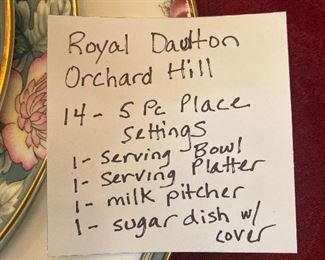 Royal Daulton
Orchard Hill
14 - 5 Pc Place
Settings
1 - Serving Bowl
1 - Serving Platter
1 - milk pitcher
1 - sugar dish w/
cover